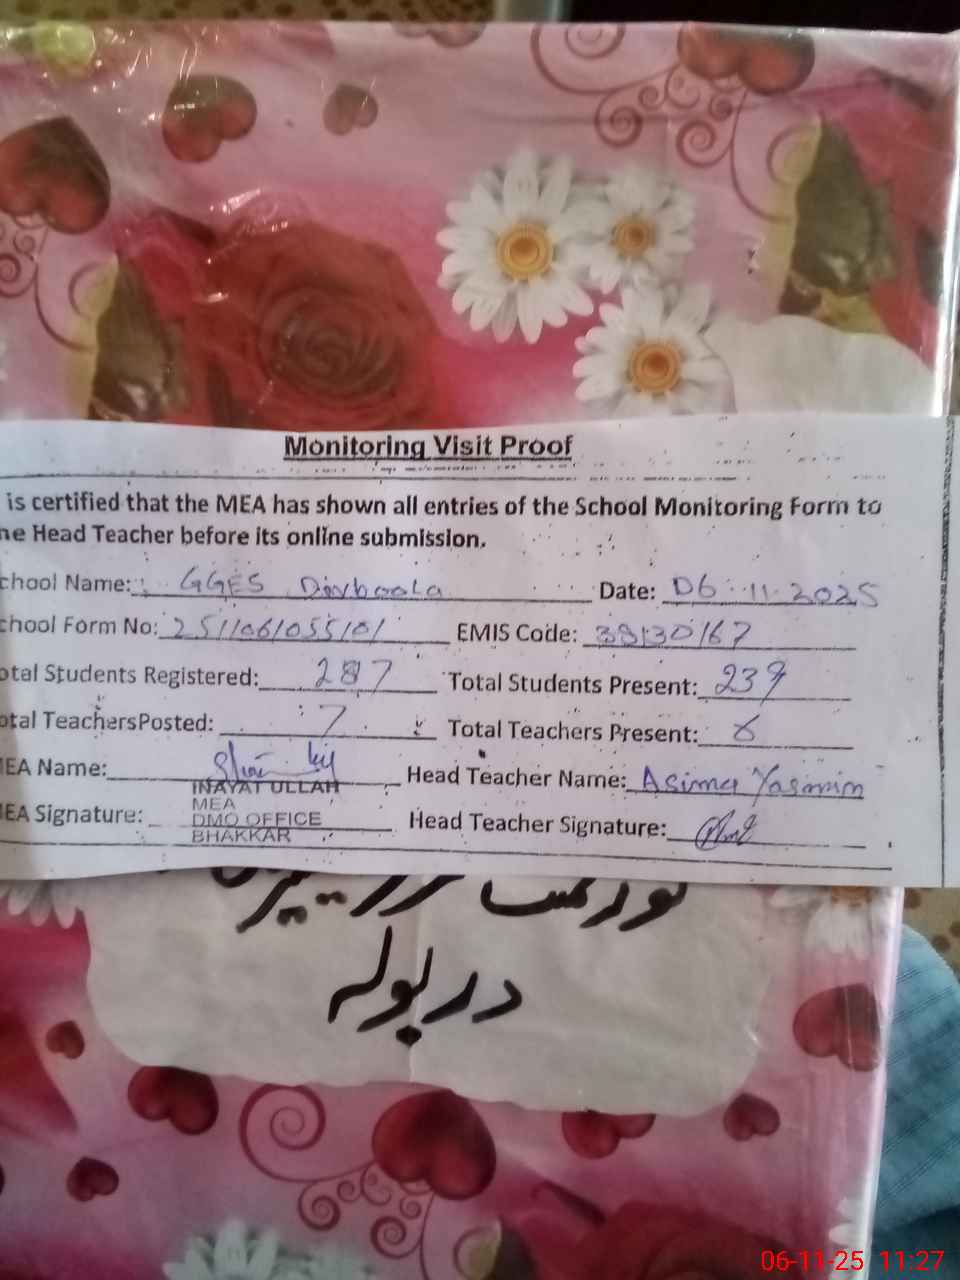 Monitoring Visit Proof
is certified that the MEA has shown all entries of the School Monitoring Form to
he Head Teacher before its online submission.
chool Name: GGES Date: 06-11-2025
chool Form No: 2511061055101 EMIS Code: 38130167
otal Students Registered: 287 Total Students Present: 239
otal TeachersPosted: 7 Total Teachers Present:
MEA Name: Head Teacher Name: Asima Yasmin
INAYAT ULLAH
MEA
MEA Signature: DMO OFFICE Head Teacher Signature:
BHAKKAR
دریولہ
06-11-25 11:27